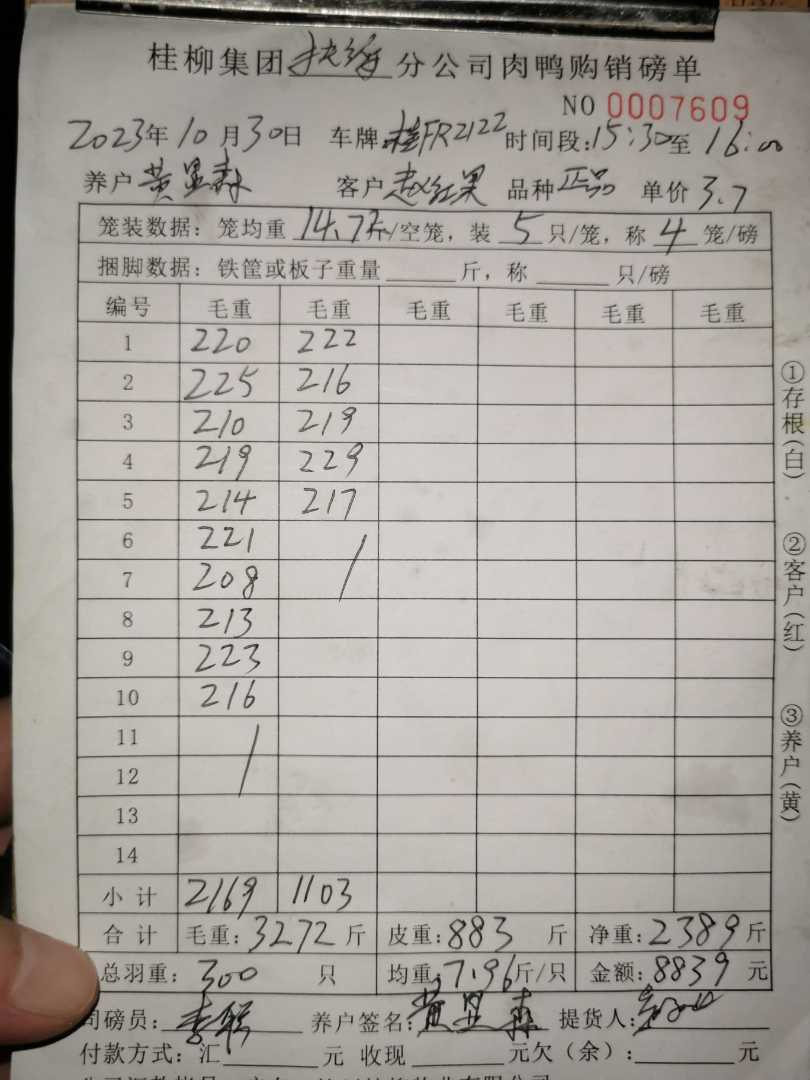 桂柳集团扶绥分公司肉鸭购销磅单
NO 0007609
2023年10月30日 车牌:桂FR2122 时间段:15:30至16:00
养户黄显森 客户赵红果 品种正品 单价3.7
笼装数据: 笼均重14.72斤/空笼, 装5只/笼, 称4笼/磅
捆脚数据: 铁筐或板子重量____斤, 称____只/磅
编号 毛重 毛重 毛重 毛重 毛重 毛重
1 220 222
2 225 216
3 210 219
4 219 229
5 214 217
6 221
7 208
8 213
9 223
10 216
11
12
13
14
小计 2169 1103
合计 毛重:3272斤 皮重:883斤 净重:2389斤
总羽重:300只 均重:7.96斤/只 金额:8839元
司磅员: 养户签名:黄显森 提货人:
付款方式: 汇____元 收现____元欠(余):____元
①存根(白)
②客户(红)
③养户(黄)